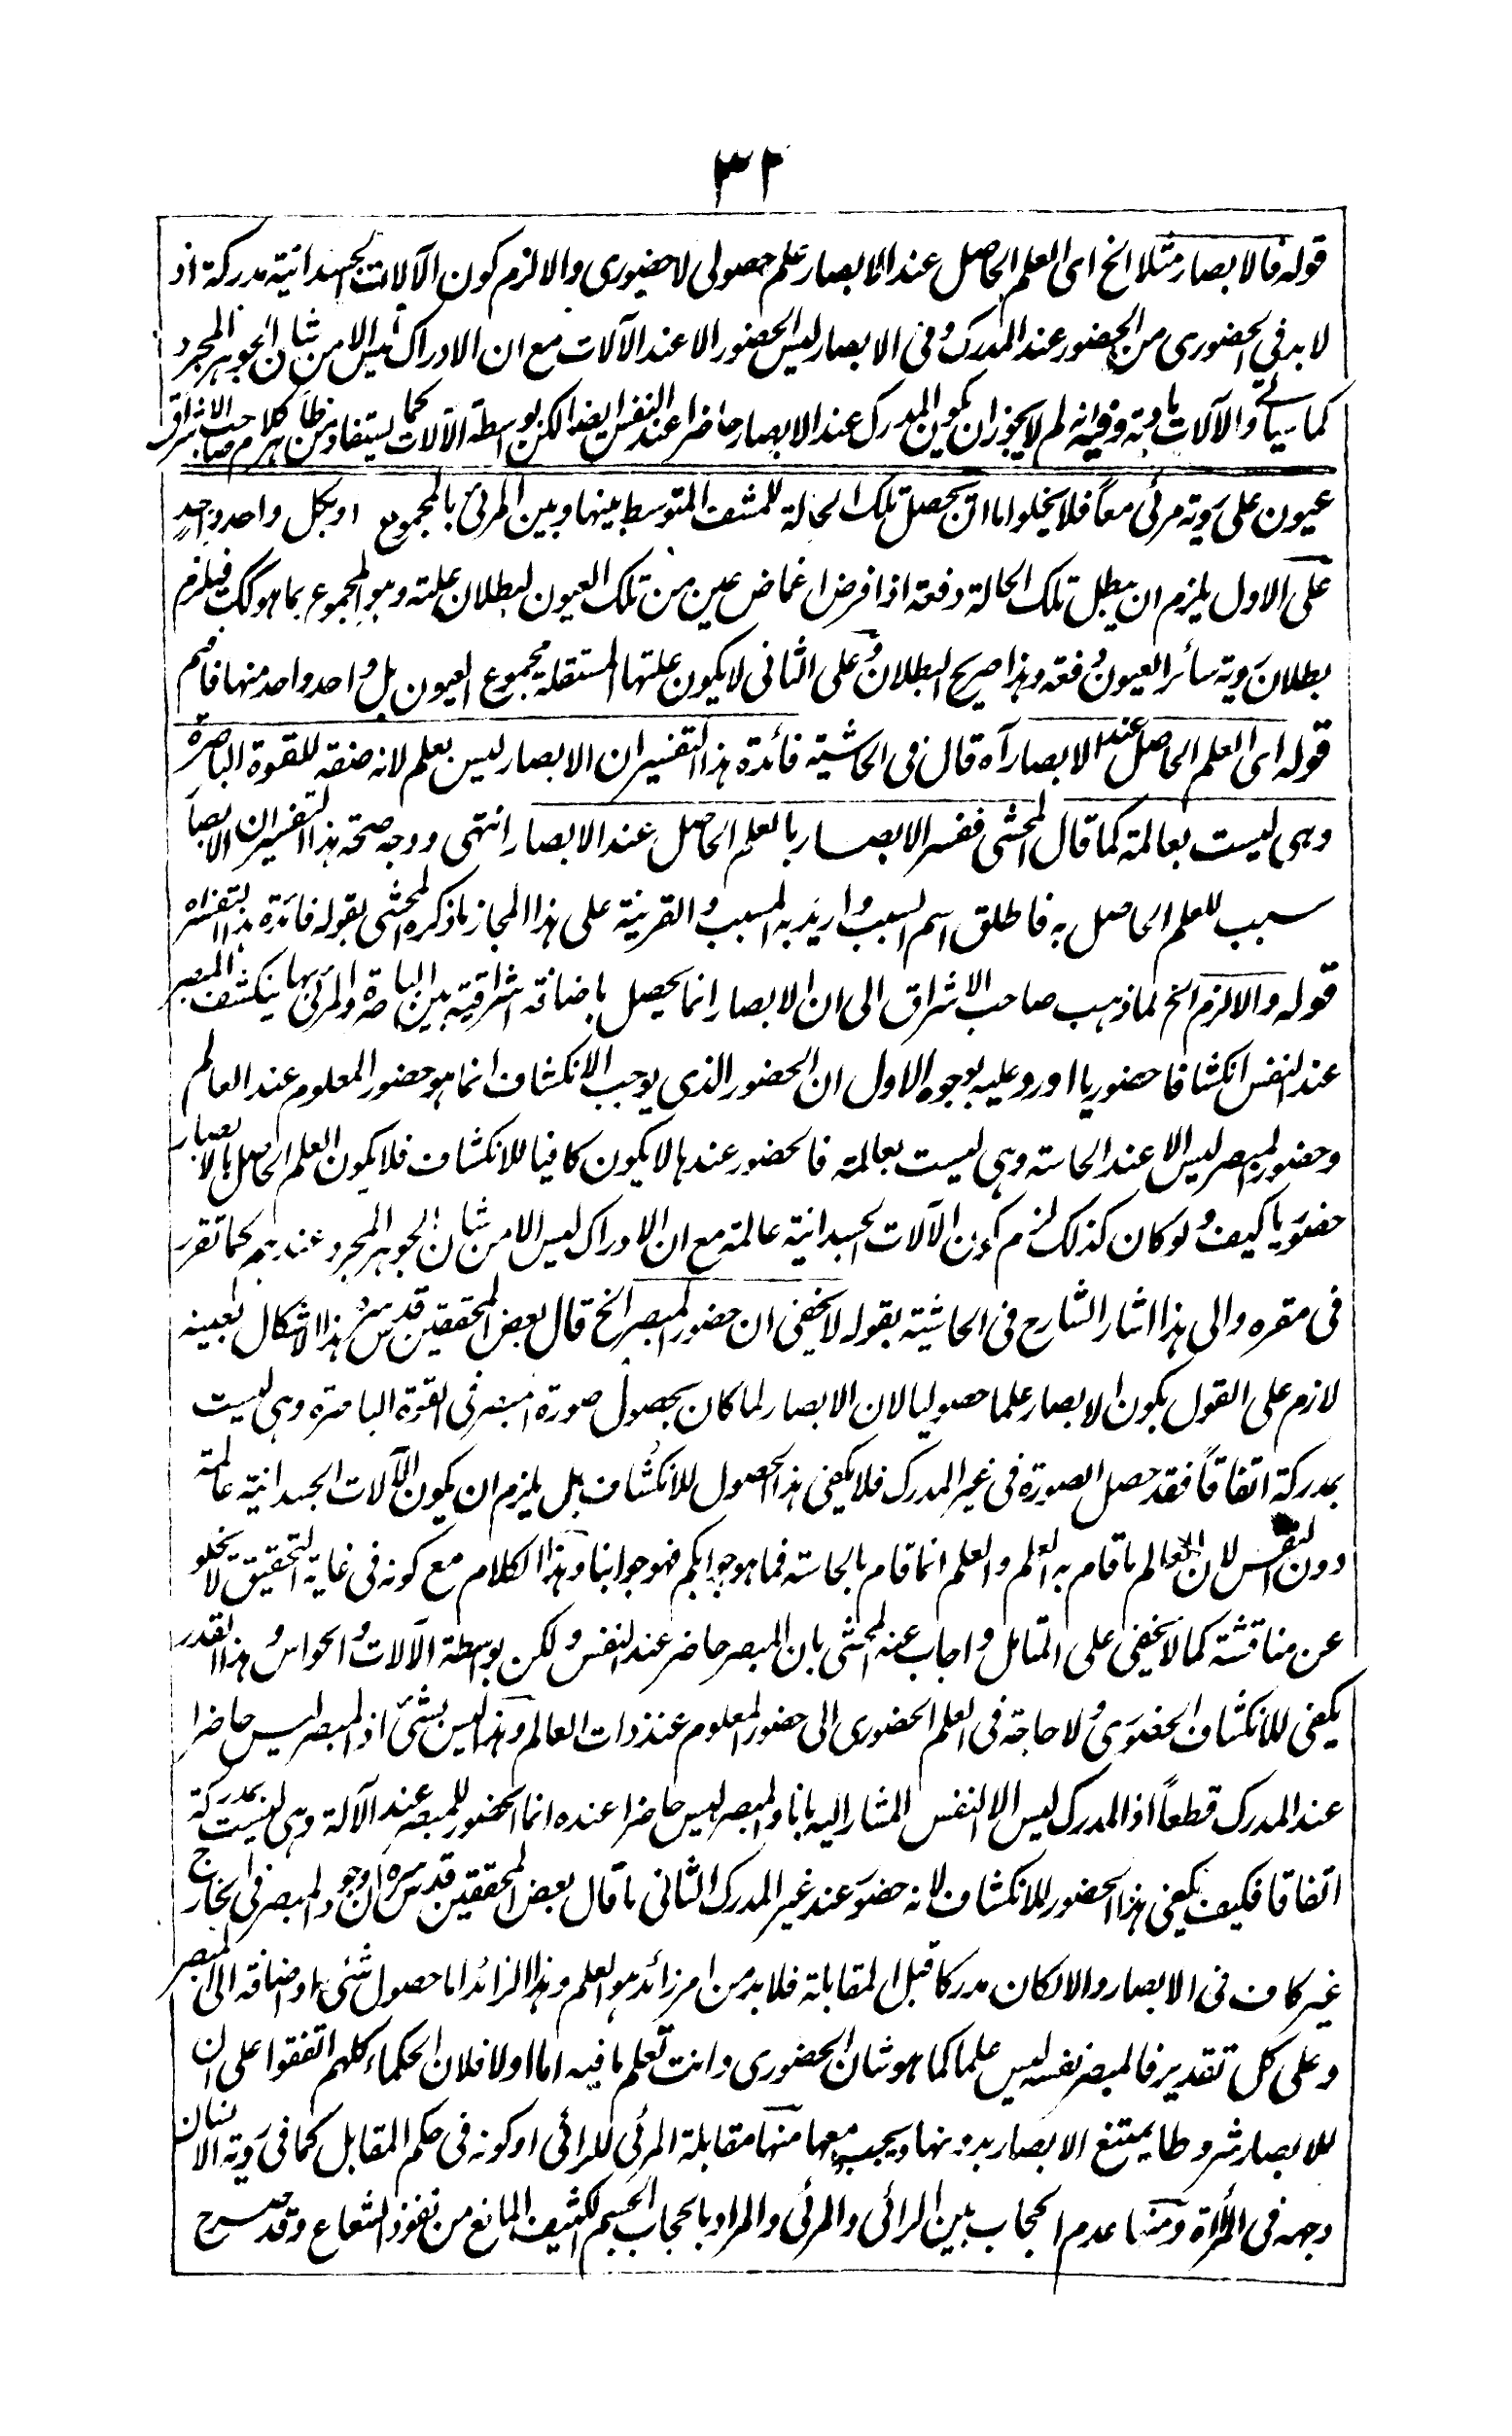 ٣٢
قوله فالابصار مثلا الخ اى العلم الحاصل عند الابصار علم حصولى لا حضورى والا لزم كون الآلات الجسدانية مدركة اذ
لا بد فى الحضورى من الحضور عند المدرك وفى الابصار ليس الحضور الا عند الآلات مع ان الادراك ليس الا من شان الجوهر المجرد
كما سيأتى والآلات مادية وفيه انه لم لا يجوز ان يكون المدرك عند الابصار حاضرا عند النفس ايضا لكن بواسطة الآلات كما يستفاد من ظاهر كلام صاحب الاشراق
عيون على روية مرئى معاً فلا يخلو اما ان يحصل تلك الحالة للمشف المتوسط بينها وبين المرئى بالمجموع او بكل واحد واحدٍ
على الاول يلزم ان يبطل تلك الحالة دفعة اذا فرض اغماض عين من تلك العيون لبطلان علته وهو المجموع بما هو كك فيلزم
بطلان روية سائر العيون دفعة وهذا صريح البطلان وعلى الثانى لا يكون علتها المستقلة مجموع العيون بل واحد واحد منها فافهم
قوله اى العلم الحاصل عند الابصار آه قال فى الحاشية فائدة هذا التفسير ان الابصار ليس بعلم لانه صفة للقوة الباصرة
وهى ليست بعالمة كما قال المحشى ففسر الابصار بالعلم الحاصل عند الابصار انتهى ووجه صحة هذا التفسير ان الابصا
سبب للعلم الحاصل به فاطلق اسم السبب واريد به المسبب والقرينة على هذا المجاز ما ذكره المحشى بقوله فائدة هذا التفسير اه
قوله والا لزم الخ لما ذهب صاحب الاشراق الى ان الابصار انما يحصل باضافة اشراقية بين الباصرة والمرئى بها ينكشف المبصر
عند النفس انكشافا حضوريا اورد عليه بوجوه الاول ان الحضور الذى يوجب الانكشاف انما هو حضور المعلوم عند العالم
وحضور المبصر ليس الا عند الحاسة وهى ليست بعالمة فالحضور عندها لا يكون كافيا للانكشاف فلا يكون العلم الحاصل بالابصار
حضوريا كيف ولو كان كذلك لزم كون الآلات الجسدانية عالمة مع ان الادراك ليس الا من شان الجوهر المجرد عندهم كما تقرر
فى مقره والى هذا اشار الشارح فى الحاشية بقوله لا يخفى ان حضور المبصر الخ قال بعض المحققين قدس سره هذا الاشكال بعينه
لازم على القول بكون الابصار علما حصوليا لان الابصار لما كان بحصول صورة المبصر فى القوة الباصرة وهى ليست
بمدركة اتفاقاً فقد حصل الصورة فى غير المدرك فلا يكفى هذا الحصول للانكشاف بل يلزم ان يكون الآلات الجسدانية عالمة
دون النفس لان العالم ما قام به العلم والعلم انما قام بالحاسة فما هو جوابكم فهو جوابنا وهذا الكلام مع كونه فى غاية التحقيق لا يخلو
عن مناقشة كما لا يخفى على المتامل واجاب عنه المحشى بان المبصر حاضر عند النفس ولكن بواسطة الآلات والحواس وهذا القدر
يكفى للانكشاف الحضورى ولا حاجة فى العلم الحضورى الى حضور المعلوم عند ذات العالم وهذا ليس بشئ اذ المبصر ليس حاضرا
عند المدرك قطعاً اذ المدرك ليس الا النفس المشار اليه بانا والمبصر ليس حاضرا عنده انما الحضور للمبصر عند الآلة وهى ليست بمدركة
اتفاقا فكيف يكفى هذا الحضور للانكشاف لانه حضور عند غير المدرك الثانى ما قال بعض المحققين قدس سره ان وجود المبصر فى الخارج
غير كاف فى الابصار والا لكان مدركا قبل المقابلة فلا بد من امر زائد هو العلم وهذا الزائد اما حصول شئ او اضافة الى المبصر
وعلى كل تقدير فالمبصر نفسه ليس علما كما هو شان الحضورى وانت تعلم ما فيه اما اولا فلان الحكماء كلهم اتفقوا على ان
للابصار شروطا يمتنع الابصار بدونها ويجب معها منها مقابلة المرئى للرائى او كونه فى حكم المقابل كما فى روية الانسان
وجهه فى المرآة ومنها عدم الحجاب بين الرائى والمرئى والمراد بالحجاب الجسم الكثيف المانع من نفوذ الشعاع وقد صرح